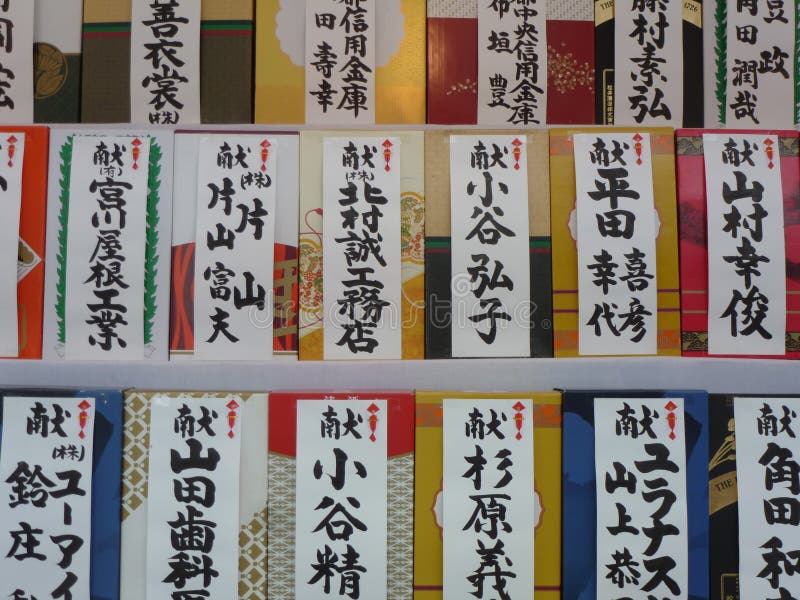 善衣裳
(株)
信用金庫
田壽幸
都中央信用金庫
布垣豊
藤村素弘
豆政
角田潤哉
献
(有)宮川屋根工業
献
(株)片山
片山富夫
献
(株)北村誠工務店
献
小谷弘子
献
平田喜彦
幸代
献
山村幸俊
献
(株)ユーアイ
鈴庄
献
山田歯科医
献
小谷精
献
杉原義
献
ユラナス
山上恭
献
角田和
dreamstime